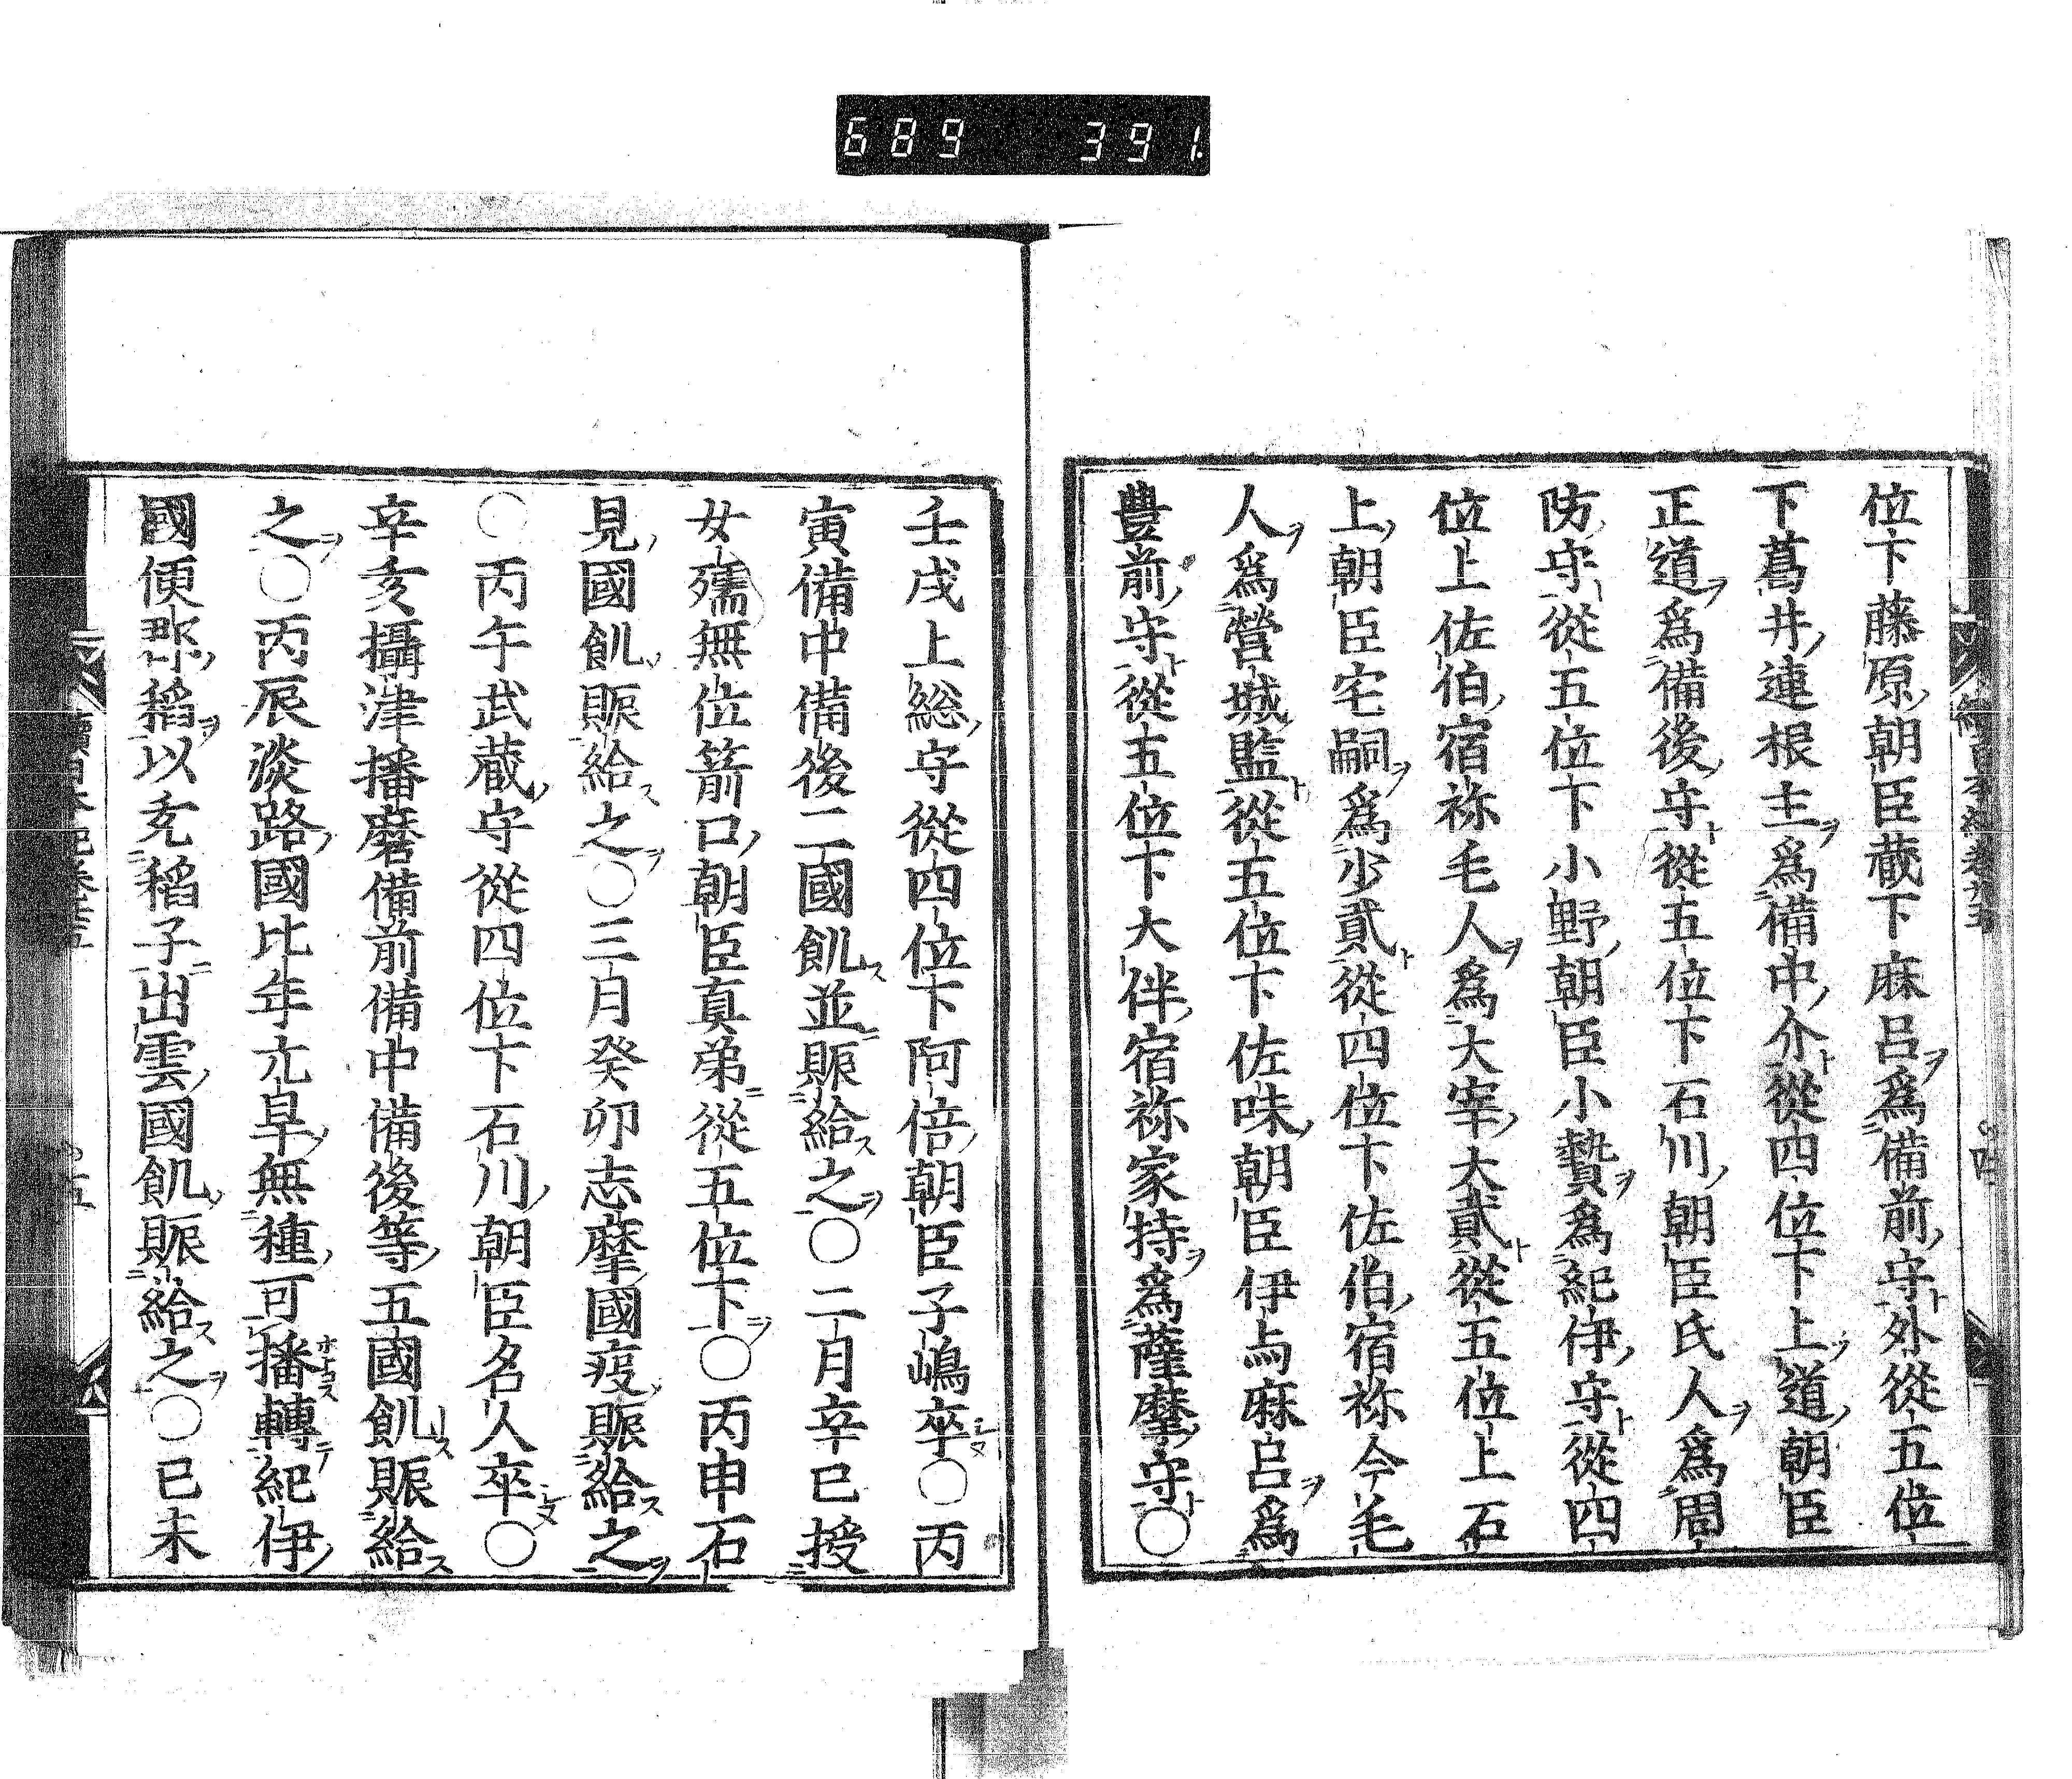 689 391
位下藤原朝臣蔵下麻呂爲備前守外從五位
下葛井連根主爲備中介從四位下上道朝臣
正道爲備後守從五位下石川朝臣氏人爲周
防守從五位下小野朝臣小贄爲紀伊守從四
位上佐伯宿祢毛人爲大宰大貳從五位上石
上朝臣宅嗣爲少貳從四位下佐伯宿祢今毛
人爲營城監從五位下佐味朝臣伊与麻呂爲
豊前守從五位下大伴宿祢家持爲薩摩守〇
壬戌上総守從四位下阿倍朝臣子嶋卒〇丙
寅備中備後二國飢並賑給之〇二月辛巳授
女孺無位箭口朝臣真弟從五位下〇丙申石
見國飢賑給之〇三月癸卯志摩國疫賑給之
〇丙午武蔵守從四位下石川朝臣名人卒〇
辛亥攝津播磨備前備中備後等五國飢賑給
之〇丙辰淡路國比年亢旱無種可播轉紀伊
國便郡稻以充稻子出雲國飢賑給之〇已未